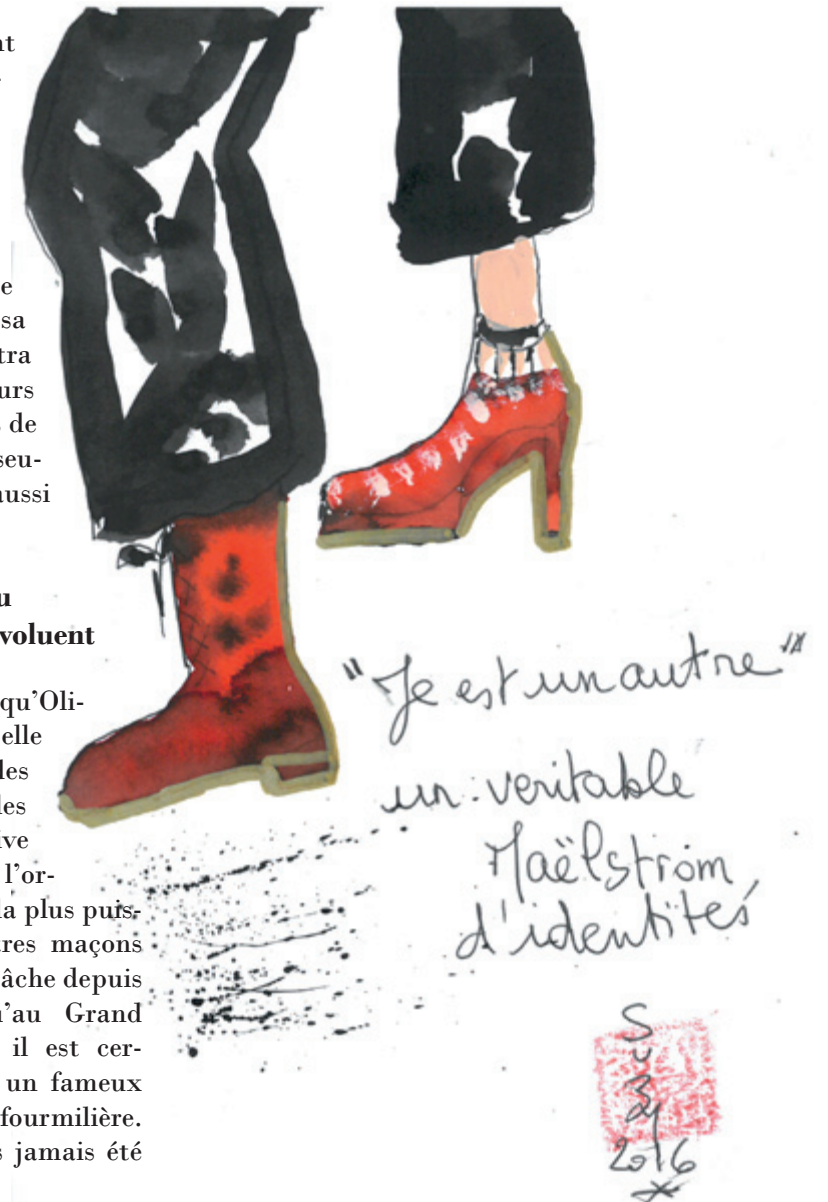 nt
e
sa
tra
urs
de
seu-
aussi
u
voluent
qu’Oli-
elle
les
les
ive
l’or-
la plus puis-
tres maçons
âche depuis
u’au Grand
il est cer-
un fameux
fourmilière.
s jamais été
"Je est un autre"
un veritable
Maëlström
d'identités
2016